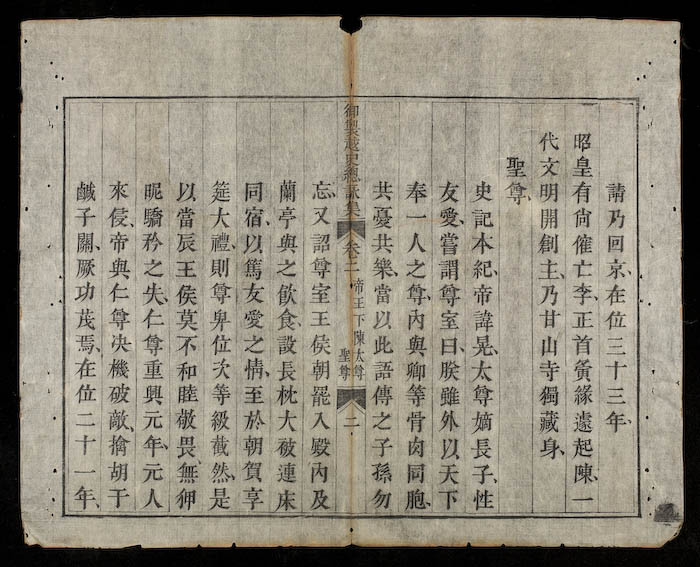 請乃回京、在位三十三年、
昭皇有尙催亡李、正首夤緣遽起陳、一
代文明開創主、乃甘山寺獨藏身、
聖尊、
史記本紀、帝諱晃、太尊嫡長子、性
友愛、嘗謂尊室曰、朕雖外以天下
奉一人之尊、內與卿等骨肉同胞、
共憂共樂、當以此語傳之子孫勿
御製越史總詠集 卷二 帝王下 陳太尊 聖尊 二
忘、又詔尊室王侯朝罷入殿內及
蘭亭與之飮食、設長枕大被連床
同宿、以篤友愛之情、至於朝賀享
筵大禮、則尊卑位次等級截然、是
以當辰王侯莫不和睦敬畏、無狎
昵驕矜之失、仁尊重興元年、元人
來侵、帝與仁尊决機破敵、擒胡于
鹹子關、厥功茂焉、在位二十一年、